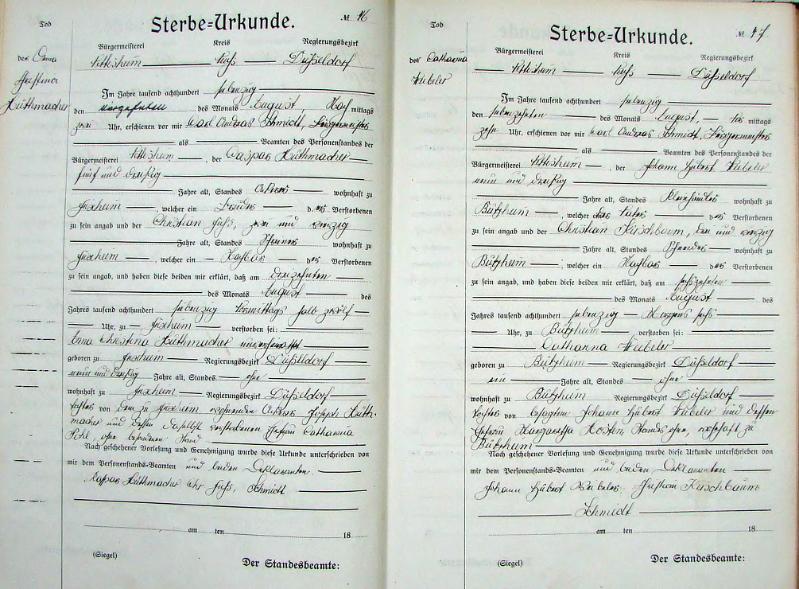 Tod
Sterbe=Urkunde.
№ 16
Bürgermeisterei Kreis Regierungsbezirk
des Anna
Christina
Hüthmacher
Düsseldorf
Im Jahre tausend achthundert siebenzig
den vierzehnten des Monats August Nachmittags
zwei Uhr, erschienen vor mir Carl Andreas Schmidt, Bürgermeister
als Beamten des Personenstandes der
Bürgermeisterei der Caspar Hüthmacher
fünf und dreißig
Jahre alt, Standes Ackerer wohnhaft zu
welcher ein Bruder des Verstorbenen
zu sein angab und der Christian zwei und
Jahre alt, Standes wohnhaft zu
welcher ein Nachbar des Verstorbenen
zu sein angab, und haben diese beiden mir erklärt, daß am dreizehnten
des Monats August des
Jahres tausend achthundert siebenzig Vormittags halb zwölf
Uhr, zu verstorben sei:
Anna Christina Hüthmacher
geboren zu Regierungsbezirk Düsseldorf
neun und dreißig Jahre alt, Standes ohne
wohnhaft zu Regierungsbezirk Düsseldorf
Tochter von dem zu wohnenden Ackerer Joseph Hüth-
macher und dessen daselbst verstorbenen Ehefrau Catharina
ohne
Nach geschehener Vorlesung und Genehmigung wurde diese Urkunde unterschrieben von
mir dem Personenstands-Beamten und beiden Deklaranten
Kaspar Hüthmacher Schmidt
am ten 18
(Siegel)
Der Standesbeamte:
Tod
Sterbe=Urkunde.
№ 17
Bürgermeisterei Kreis Regierungsbezirk
der Catharina
Düsseldorf
Im Jahre tausend achthundert siebenzig
den siebenzehnten des Monats August, Vormittags
zehn Uhr, erschienen vor mir Carl Andreas Schmidt, Bürgermeister
als Beamten des Personenstandes der
Bürgermeisterei der Johann Hubert
neun und dreißig
Jahre alt, Standes wohnhaft zu
Bützheim welcher der Vater des Verstorbenen
zu sein angab und der Christian Kirschbaum, und
Jahre alt, Standes wohnhaft zu
Bützheim welcher ein Nachbar des Verstorbenen
zu sein angab, und haben diese beiden mir erklärt, daß am sechszehnten
des Monats August des
Jahres tausend achthundert siebenzig Morgens sechs
Uhr, zu Bützheim verstorben sei:
Catharina
geboren zu Bützheim Regierungsbezirk Düsseldorf
ein Jahre alt, Standes ohne
wohnhaft zu Bützheim Regierungsbezirk Düsseldorf
Tochter von Johann Hubert und dessen
Ehefrau Margaretha ohne, wohnhaft zu
Bützheim
Nach geschehener Vorlesung und Genehmigung wurde diese Urkunde unterschrieben von
mir dem Personenstands-Beamten und beiden Deklaranten
Johann Hubert Kirschbaum
Schmidt
am ten 18
(Siegel)
Der Standesbeamte: